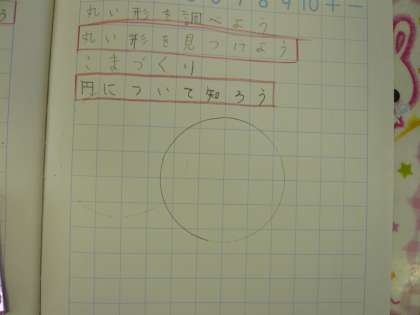 6 7 8 9 10 + −
丸い形を調べよう
丸い形を見つけよう
こまづくり
円について知ろう
う